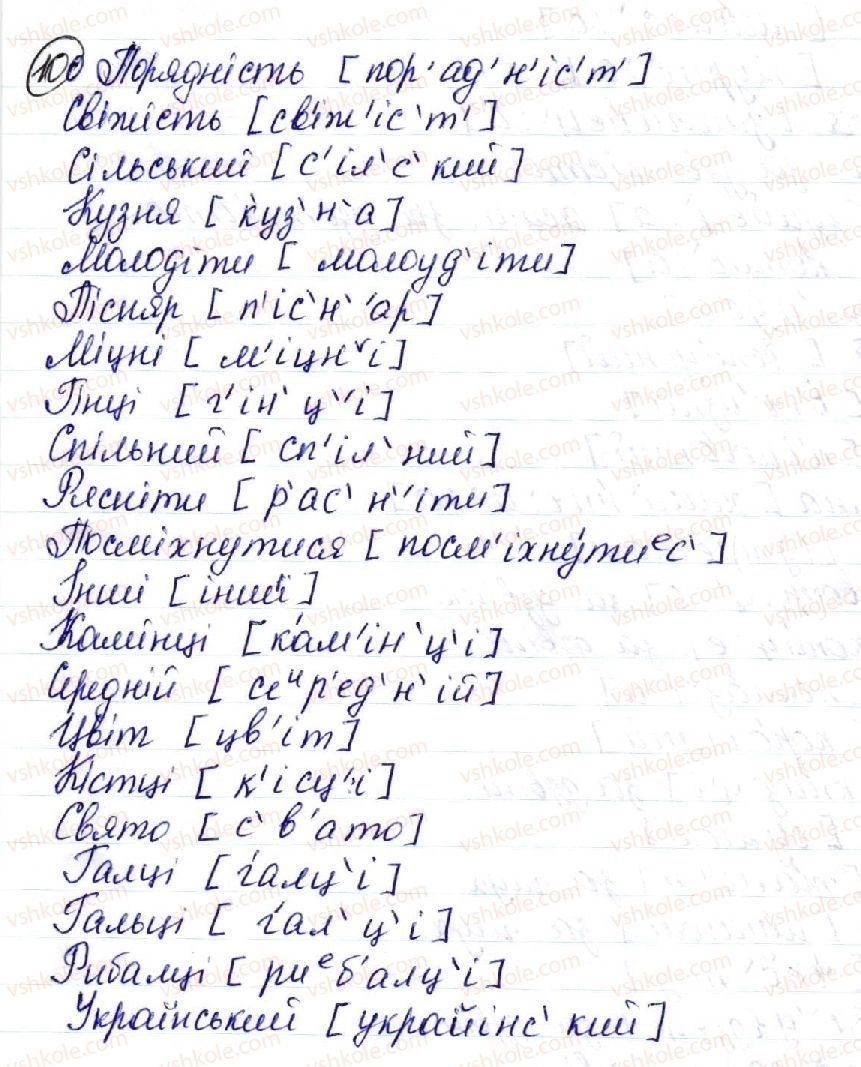 10б Порядність [пор'ад'н'іс'т']
Свіжість [свіж'іс'т']
Сільський [с'іл'с'кий]
Кузня [куз'н'а]
Молодіти [молоуд'іти]
Пісняр [п'іс'н'ар]
Міцні [м'іцн'і]
Гінці [г'ін'ц'і]
Спільний [сп'іл'ний]
Рясніти [р'ас'н'іти]
Посміхнутися [посм'іхну́тиес']
Інші [інші]
Камінці [кам'ін'ц'і]
Середній [сеир'ед'н'ій]
Цвіт [цв'іт]
Кістці [к'ісц'і]
Свято [с'в'ато]
Галці [галц'і]
Гальці [гал'ц'і]
Рибалці [риеб'алц'і]
Український [украйінс'кий]